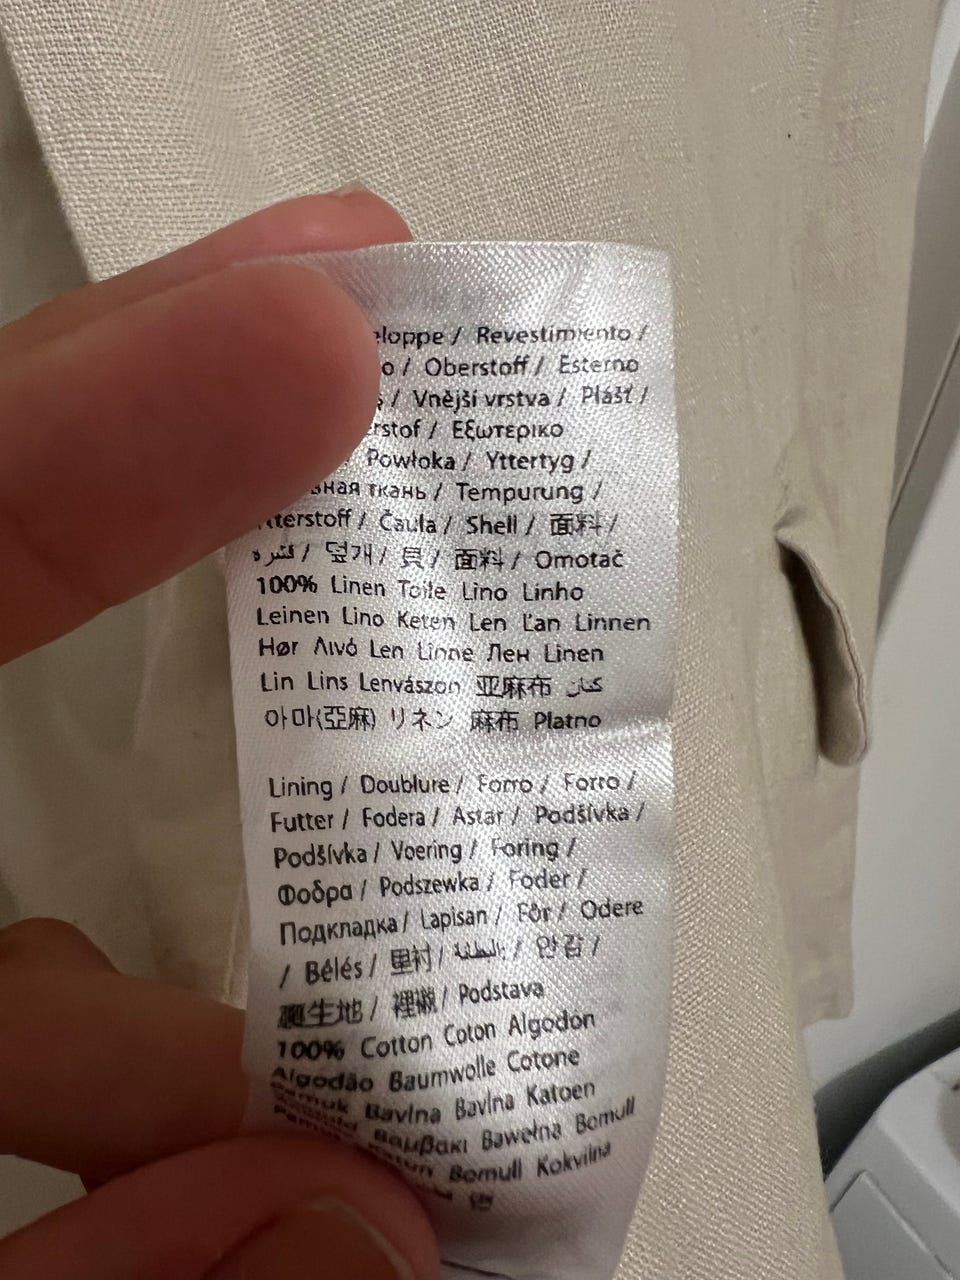 eloppe / Revestimiento /
o / Oberstoff / Esterno
/ Vnější vrstva / Plášť /
rstof / Εξωτερικο
Powłoka / Yttertyg /
вная ткань / Tempurung /
tterstoff / Čaula / Shell / 面料 /
/ 덮개 / 貝 / 面料 / Omotač
100% Linen Toile Lino Linho
Leinen Lino Keten Len Ľan Linnen
Hør Λινό Len Linne Лен Linen
Lin Lins Lenvászon 亚麻布 كتان
아마(亞麻) リネン 麻布 Platno
Lining / Doublure / Forro / Forro /
Futter / Fodera / Astar / Podšívka /
Podšívka / Voering / Foring /
Φοδρα / Podszewka / Foder /
Подкладка / Lapisan / Fôr / Odere
/ Bélés / 里衬 / / 안감 /
裏生地 / 裡襯 / Podstava
100% Cotton Coton Algodon
Algodão Baumwolle Cotone
Pamuk Bavlna Bavlna Katoen
Βαμβακι Bawełna Bomull
Bomull Kokvilna
면